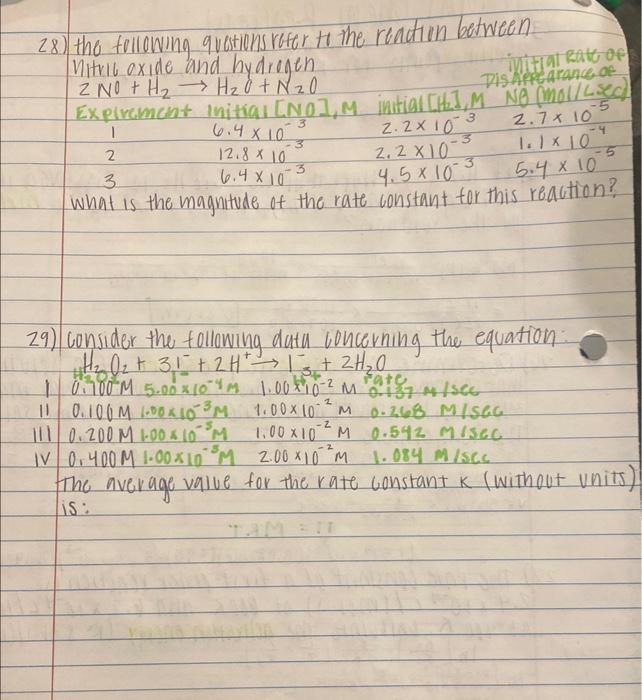 28) the following questions refer to the reaction between
Nitric oxide and hydrogen
2 NO + H₂ → H₂O + N₂O
initial Rate of
Disappearance of
Expirement initial [NO], M initial [H₂], M NO (mol/L sec)
1 6.4 × 10⁻³ 2.2 × 10⁻³ 2.7 × 10⁻⁵
2 12.8 × 10⁻³ 2.2 × 10⁻³ 1.1 × 10⁻⁴
3 6.4 × 10⁻³ 4.5 × 10⁻³ 5.4 × 10⁻⁵
What is the magnitude of the rate constant for this reaction?
29) Consider the following data concerning the equation:
H₂O₂ + 3I⁻ + 2H⁺ → I₃⁻ + 2H₂O
H₂O₂ I⁻ H⁺ rate
I 0.100 M 5.00 × 10⁻⁴ M 1.00 × 10⁻² M 0.137 M/sec
II 0.100 M 1.00 × 10⁻³ M 1.00 × 10⁻² M 0.268 M/sec
III 0.200 M 1.00 × 10⁻³ M 1.00 × 10⁻² M 0.542 M/sec
IV 0.400 M 1.00 × 10⁻³ M 2.00 × 10⁻² M 1.084 M/sec
The average value for the rate constant K (without units)
is: